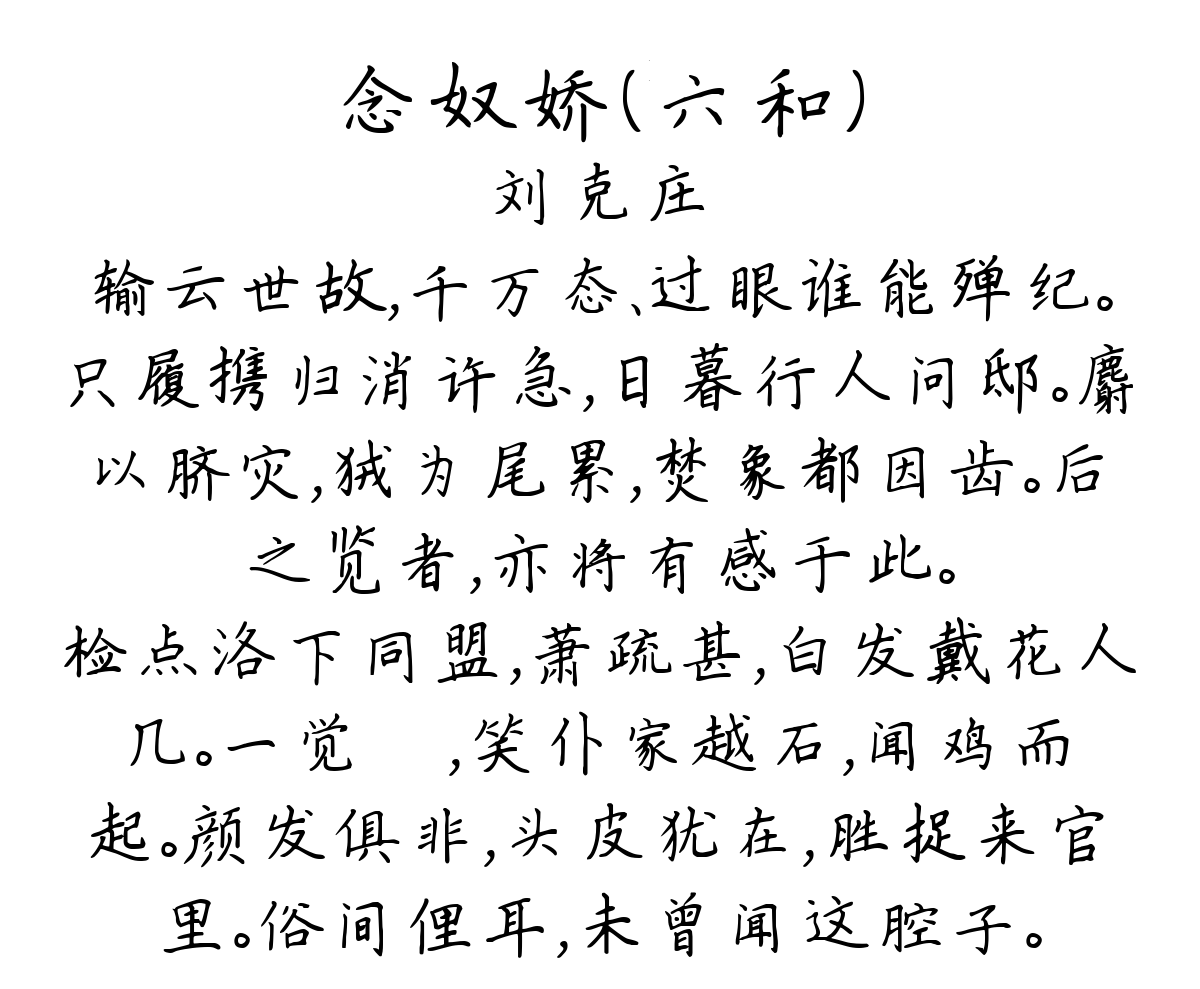 念奴娇(六和)
刘克庄
输云世故,千万态、过眼谁能殚纪。
只履携归消许急,日暮行人问邸。麝
以脐灾,狨为尾累,焚象都因齿。后
之览者,亦将有感于此。
检点洛下同盟,萧疏甚,白发戴花人
几。一觉 ,笑仆家越石,闻鸡而
起。颜发俱非,头皮犹在,胜捉来官
里。俗间俚耳,未曾闻这腔子。